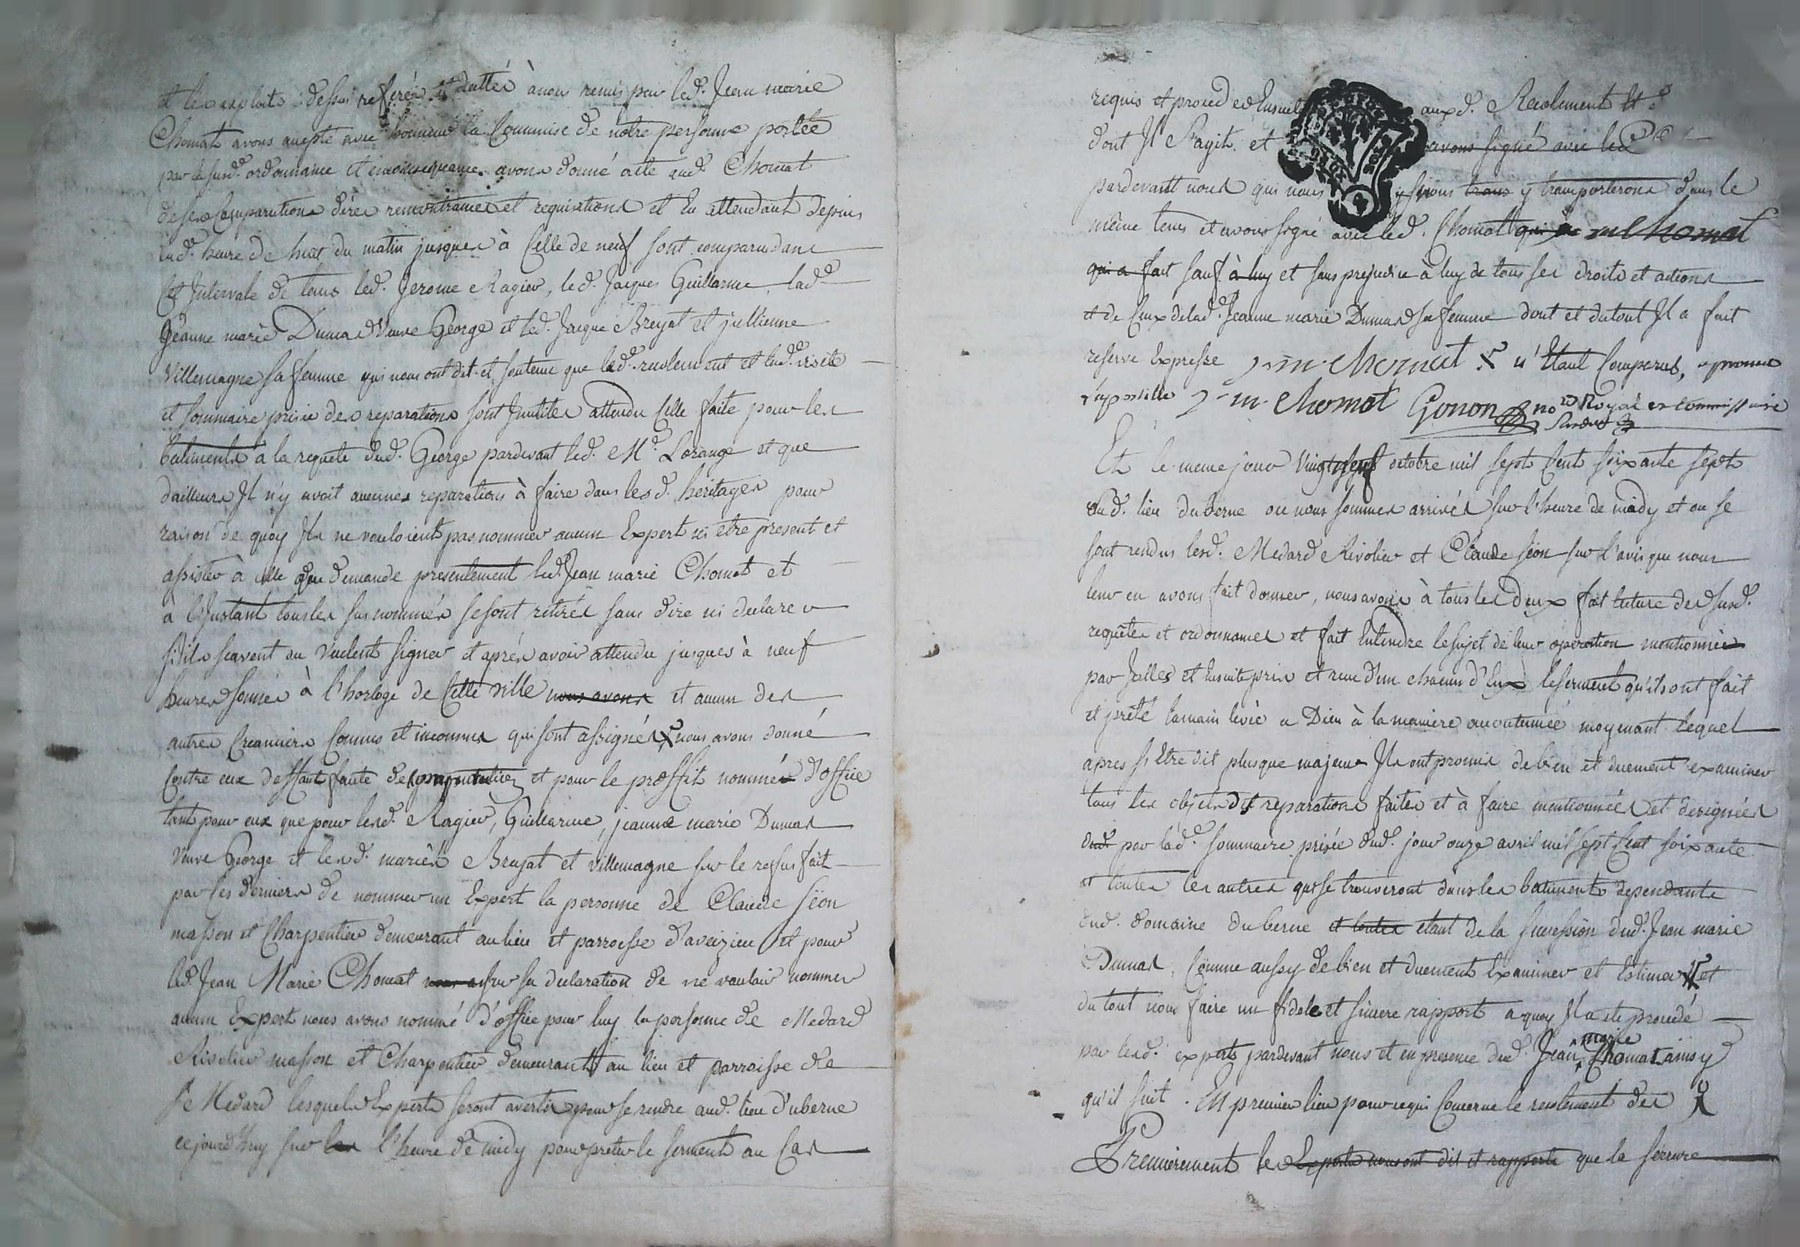 et les exploits dessus referés et dattés à nous remis par led. Jean marie
Chomat avons accepté avec honneur la Commise de notre personne portée
par lesusd. ordonnance et en consequance avons donné acte aud. Chomat
de ses Comparutions dires remontrances et requisitions et En attendant depuis
lad. heure de huit du matin jusques à Celle de neuf sont comparus dans
Cet Intervale de tems led. Jerome Ragieu, led. Jacques Guillarme, lad.
Jeanne marie Dumas Veuve George et led. Jacque Breyat et jullienne
Villemagne sa femme qui nous ont dit et soutenu que led. reolement et lad. visite
et Sommaire prisie des reparations sont Inutiles attendu Celle faite pour les
batiments a la requete dud. George pardevant led. Me. Lorange et que
dailleurs Il n'y avoit aucunes reparations à faire dans lesd. heritages pour
raison de quoy Ils ne vouloient pas nommer aucun Expert ni etre present et
assister à celle que demande presentement led. Jean marie Chomat et
a l'Instant tous les sus nommés se sont retirés sans dire ni declarer
s'ils scavent ou Veulent signer et aprés avoir attendu jusques à neuf
heures sonnées à l'horloge de Cette ville nous avons et aucun des
autres Creanciers Connus et inconnus qui sont assignés nous avons donné
Contre eux deffaut faute de Comparution et pour le proffit nommé d'office
tant pour eux que pour lesd. Ragieu, Guillarme, jeanne marie Dumas
Veuve George et lesd. mariés Breyat et Villemagne sur le refus fait
par ces derniers de nommer un Expert la personne de Claude Séon
masson et Charpentier demeurant au lieu et parroisse d'aveizieu et pour
led. Jean Marie Chomat sur sa declaration de ne vouloir nommer
aucun Expert nous avons nommé d'office pour luy la personne de Medard
Rivolier masson et Charpentier demeurant au lieu et parroisse de
St. Medard lesquels Experts seront avertis pour se rendre aud. lieu d'uberne
cejourd'huy sur les l'heure de midy pour preter le serment au Cas
requis et proceder Ensuite aux d. Recolement Et
dont Il s'agit et avons signé avec led
pardevant nous qui nous y transporterons dans le
même tems et avons signé avec led. Chomat qui a jm Chomat
qui a fait sauf à luy et sans prejudice à luy de tous ses droits et actions
et de Ceux de lad. Jeanne marie Dumas sa femme dont et du tout Il a fait
reserve Expresse j-m-chomat n'Etant Comparus, approuvé
l'apostille j-m chomat Gonon no.re Royal et commissaire
Et le meme jour Vingt sept octobre mil sept Cent soixante sept
aud. lieu duberne ou nous sommes arrivés sur l'heure de midy et ou se
sont rendus lesd. Medard Rivolier et Claude séon sur l'avis que nous
leur en avons fait donner, nous avons à tous les deux fait lecture des susd.
requêtes et ordonnances et fait Entendre le sujet de leur operation mentionnée
par Icelles et Ensuite pris et receu d'un chacun d'Eux le serment qu'ils ont fait
et prêté la main levée a Dieu à la maniere accoutumée moyenant lequel
apres s'Etre dit plusque majeurs Ils ont promis de bien et duement examiner
tous les objets des reparations faites et à faire mentionnées et designées
dud. par lad. sommaire prisée dud. jour onze avril mil sept Cent soixante
et toutes les autres qui se trouveront dans les batiments dependants
dud. domaine duberne et toutes etant de la succession dud. Jean marie
Dumas, Comme aussy de bien et duement Examiner et Estimer et
du tout nous faire un fidele et sincere rapport a quoy Il a ete procedé
par lesd. experts pardevant nous et en presence dud. Jean marie Chomat ainsy
qu'il suit. En premier lieu pour ce qui Concerne le reolement des
Premierement les Experts nous ont dit et rapporté que la serrure